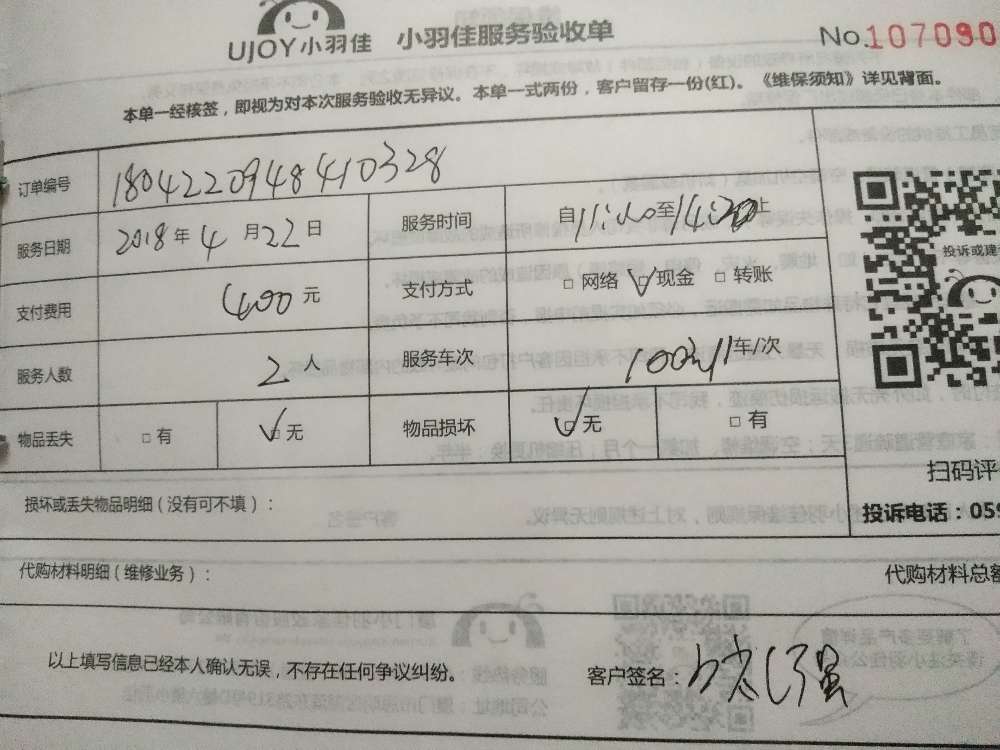 UJOY小羽佳 小羽佳服务验收单 No.107090
本单一经核签，即视为对本次服务验收无异议。本单一式两份，客户留存一份(红)。《维保须知》详见背面。
订单编号 180422094841 0328
服务日期 2018年4月22日 服务时间 自11:00至14:30止
支付费用 400元 支付方式 □网络 ☑现金 □转账
服务人数 2人 服务车次 车/次
物品丢失 □有 ☑无 物品损坏 ☑无 □有
投诉或建
扫码评
损坏或丢失物品明细（没有可不填）：
投诉电话：059
代购材料明细（维修业务）： 代购材料总额
以上填写信息已经本人确认无误，不存在任何争议纠纷。 客户签名：